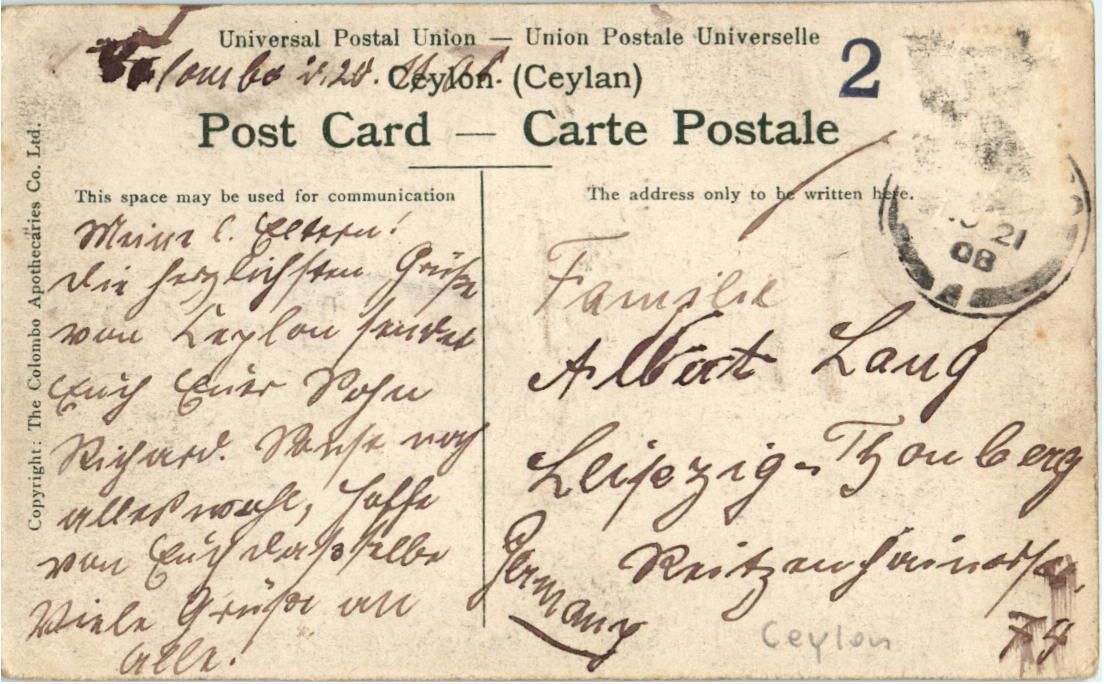 Universal Postal Union — Union Postale Universelle
Colombo d. 20.
Ceylon (Ceylan)
2
Post Card — Carte Postale
This space may be used for communication
The address only to be written here.
Copyright: The Colombo Apothecaries Co. Ltd.
Meine l. Eltern!
die herzlichsten Grüße
von Ceylon sendet
Euch Euer Sohn
Richard. Sonst noch
alles wohl, hoffe
von Euch dasselbe
Viele Grüße an
alle.
Familie
Albert Lang
Leipzig-Thonberg
Reitzenhainerstr.
74
Germany
Ceylon
21
08
A